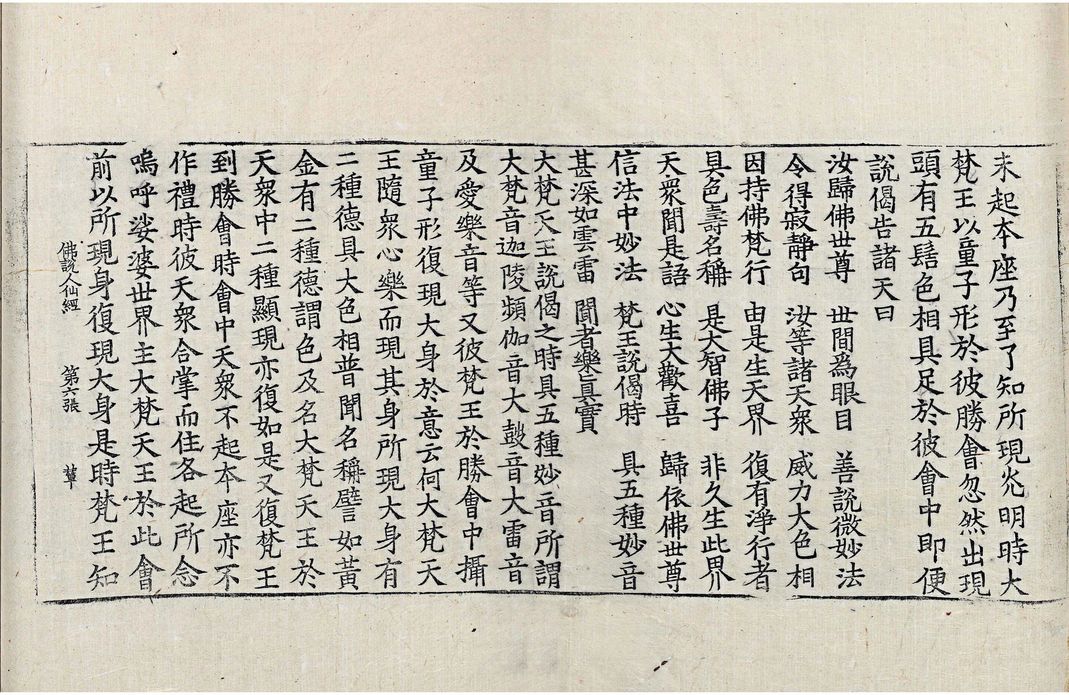 未起本座乃至了知所現光明時大
梵王以童子形於彼勝會忽然出現
頭有五髻色相具足於彼會中即便
說偈告諸天曰
汝歸佛世尊　世間為眼目　善說微妙法
令得寂靜句　汝等諸天衆　威力大色相
因持佛梵行　由是生天界　復有淨行者
具色壽名稱　是大智佛子　非久生此界
天衆聞是語　心生大歡喜　歸依佛世尊
信法中妙法　梵王說偈時　具五種妙音
甚深如雲雷　聞者樂眞實
大梵天王說偈之時具五種妙音所謂
大梵音迦陵頻伽音大鼓音大雷音
及愛樂音等又彼梵王於勝會中攝
童子形復現大身於意云何大梵天
王隨衆心樂而現其身所現大身有
二種德具大色相普聞名稱譬如黃
金有二種德謂色及名大梵天王於
天衆中二種顯現亦復如是又復梵王
到勝會時會中天衆不起本座亦不
作禮時彼天衆合掌而住各起所念
嗚呼娑婆世界主大梵天王於此會
佛說人仙經　第六張　輦
前以所現身復現大身是時梵王知